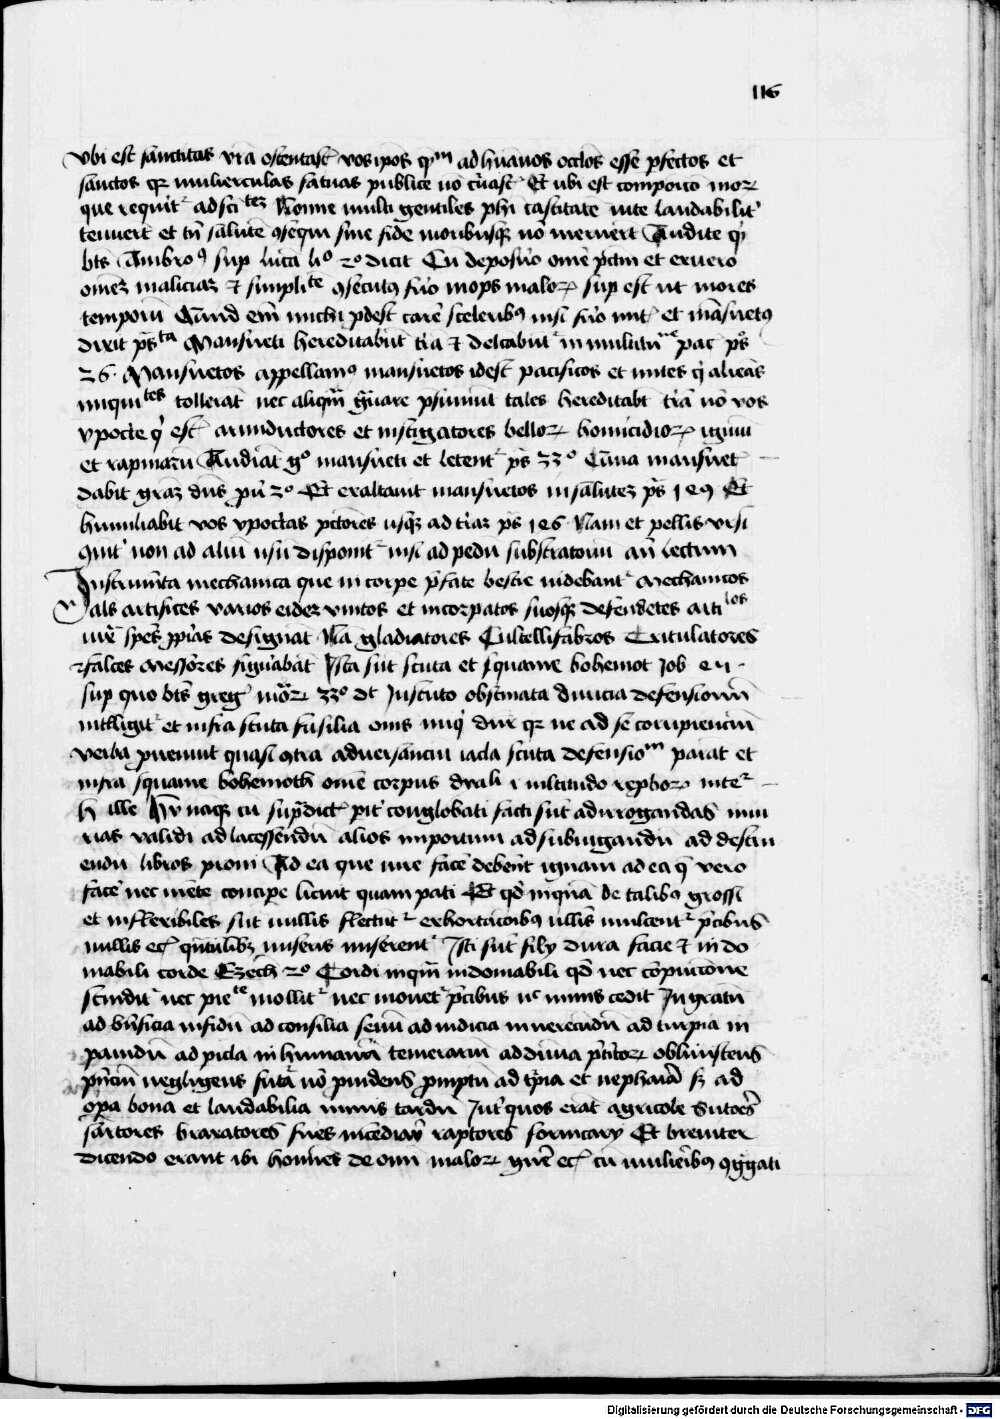 116
vbi est sanctitas vr̄a ostentast vos ip̄os ad hūanos oclos esse p̄fectos et
sanctos qꝛ mulierculas fatuas publice nō Et ubi est compoītō moꝝ
que requirit᷑ ad sci Nonne multi gentiles ph̄i castitate vite laudabilit᷑
tenuert et tn̄ salutē ꝯsequi sine fide moribusqꝫ nō meruert Audite
bt̄s Ambroꝰ sup luca liº 2º dicit Cū deposuᵒ omē pctm̄ et exuero
omēz maliciaz et simpliᵗᵉ ꝯsecutꝰ fuᵒ inops maloꝝ sup est ut mores
temperē Quid em̄ michi ꝓdest carē sceleribꝰ nisi fuᵒ mit᷑ et māsuetꝰ
dixit ps̄ᵗᵃ Mansueti hereditabūt tr̄a et delcābūt᷑ in multitū pac ps̄
26 Mansuetos appellamꝰ mansuetos idest pacificos et mites q̇ alienas
iniquiᵗᵉˢ tollerāt nec aliqm̄ ḡuare p̄sumūt tales hereditabt tr̄a nō vos
ypocte q̇ est᷑ seductores et instigatores belloꝝ homicidioꝝ igniū
et rapinarū Audiāt gº mansueti et letent᷑ ps̄ 33º mansuet
dabit graz dn̄s ꝓū 2º Et exaltauit mansuetos in salutez ps̄ 149 Et
humiliabit vos ypoctas pctores usqꝫ ad traz ps̄ 146 Nam et pellis vrsi
non ad aliū usū disponit᷑ nisi ad pedū substratoriū an̄ lectum
Instrumta mechanica que in corpe p̄fate bestie videbant᷑ Mechanicos
vᵉals artifices varios eidez vnitos et incorpatos suosqꝫ defendētes artiˡᵒˢ
iux̄ spēs ꝓpias designāt Nā gladiatores Cultellifabros
falces Messores figurabāt Ista sūt scuta et squame bohemot Job 41
sup quo bt̄s greg᷑ moꝝ 33º dt Inscuto obstinata duricia defensionū
intelligit᷑ et infra scuta fusilia om̄s iniq̇ dur qꝛ ne ad se corripienciū
verba ꝑueniūt quasi ꝯtra aduersanciū iacla scuta defensioᵐ parat et
infra squame bohemoth omē corpus dyaboli ē multitudo reproboꝝ
h ille Hii naqꝫ cū supᵃdict᷑ pit᷑ conglobati facti sūt ad irrogandas iniu
rias validi ad lacessendū alios importuni ad subiugandū ad destru
endū libros proni Ad ea que iure facē debent ignaui ad ea q̄ vero
facē nec mēte concipe licuit quam pati Et qd̄ inquā de talibꝰ grossi
et inflexibiles sūt nullis flectūt᷑ exhortacōibꝰ ullis mulcent᷑ p̄cibus
nullis ec᷑ qn̄tulibꝫ miseris miserent᷑ Isti sūt filij dura facie et indo
mabili corde Ezech 2º Cordi inqm̄ indomabili qd̄ nec cōpunctione
scindit᷑ nec pieᵗᵉ mollit᷑ nec mouet᷑ p̄cibus nc minis cedit Ingratū
ad bn̄ficia infidū ad consilia seuū ad iudicia inuerecūdū ad turpia in
pauidū ad picla inhumanū temerariū ad diuia p̄teritoꝝ obliuiscens
pn̄ciū negligens futᵃ nō ꝓuidens promptū ad tꝑia et nephāria sꝫ ad
oꝑa bona et laudabilia nimis tardū Int᷑ quos erāt agricole Sutores
sartores braxatores fures incediarij raptores fornicarij Et breuiter
dicendo erant ibi hoīnes de omi maloꝝ gn̄e ec᷑ cū mulieribꝰ ꝯg̈gati
Digitalisierung gefördert durch die Deutsche Forschungsgemeinschaft - DFG